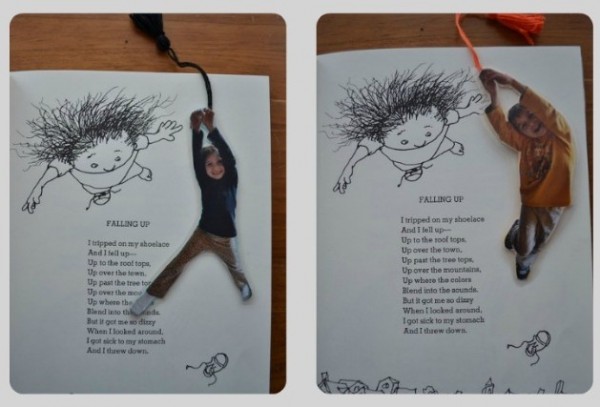 FALLING UP
I tripped on my shoelace
And I fell up—
Up to the roof tops,
Up over the town,
Up past the tree
Up over the
Up where the
Blend into
But it got me so dizzy
When I looked around,
I got sick to my stomach
And I threw down.
FALLING UP
I tripped on my shoelace
And I fell up—
Up to the roof tops,
Up over the town,
Up past the tree tops,
Up over the mountains,
Up where the colors
Blend into the sounds.
But it got me so dizzy
When I looked around,
I got sick to my stomach
And I threw down.